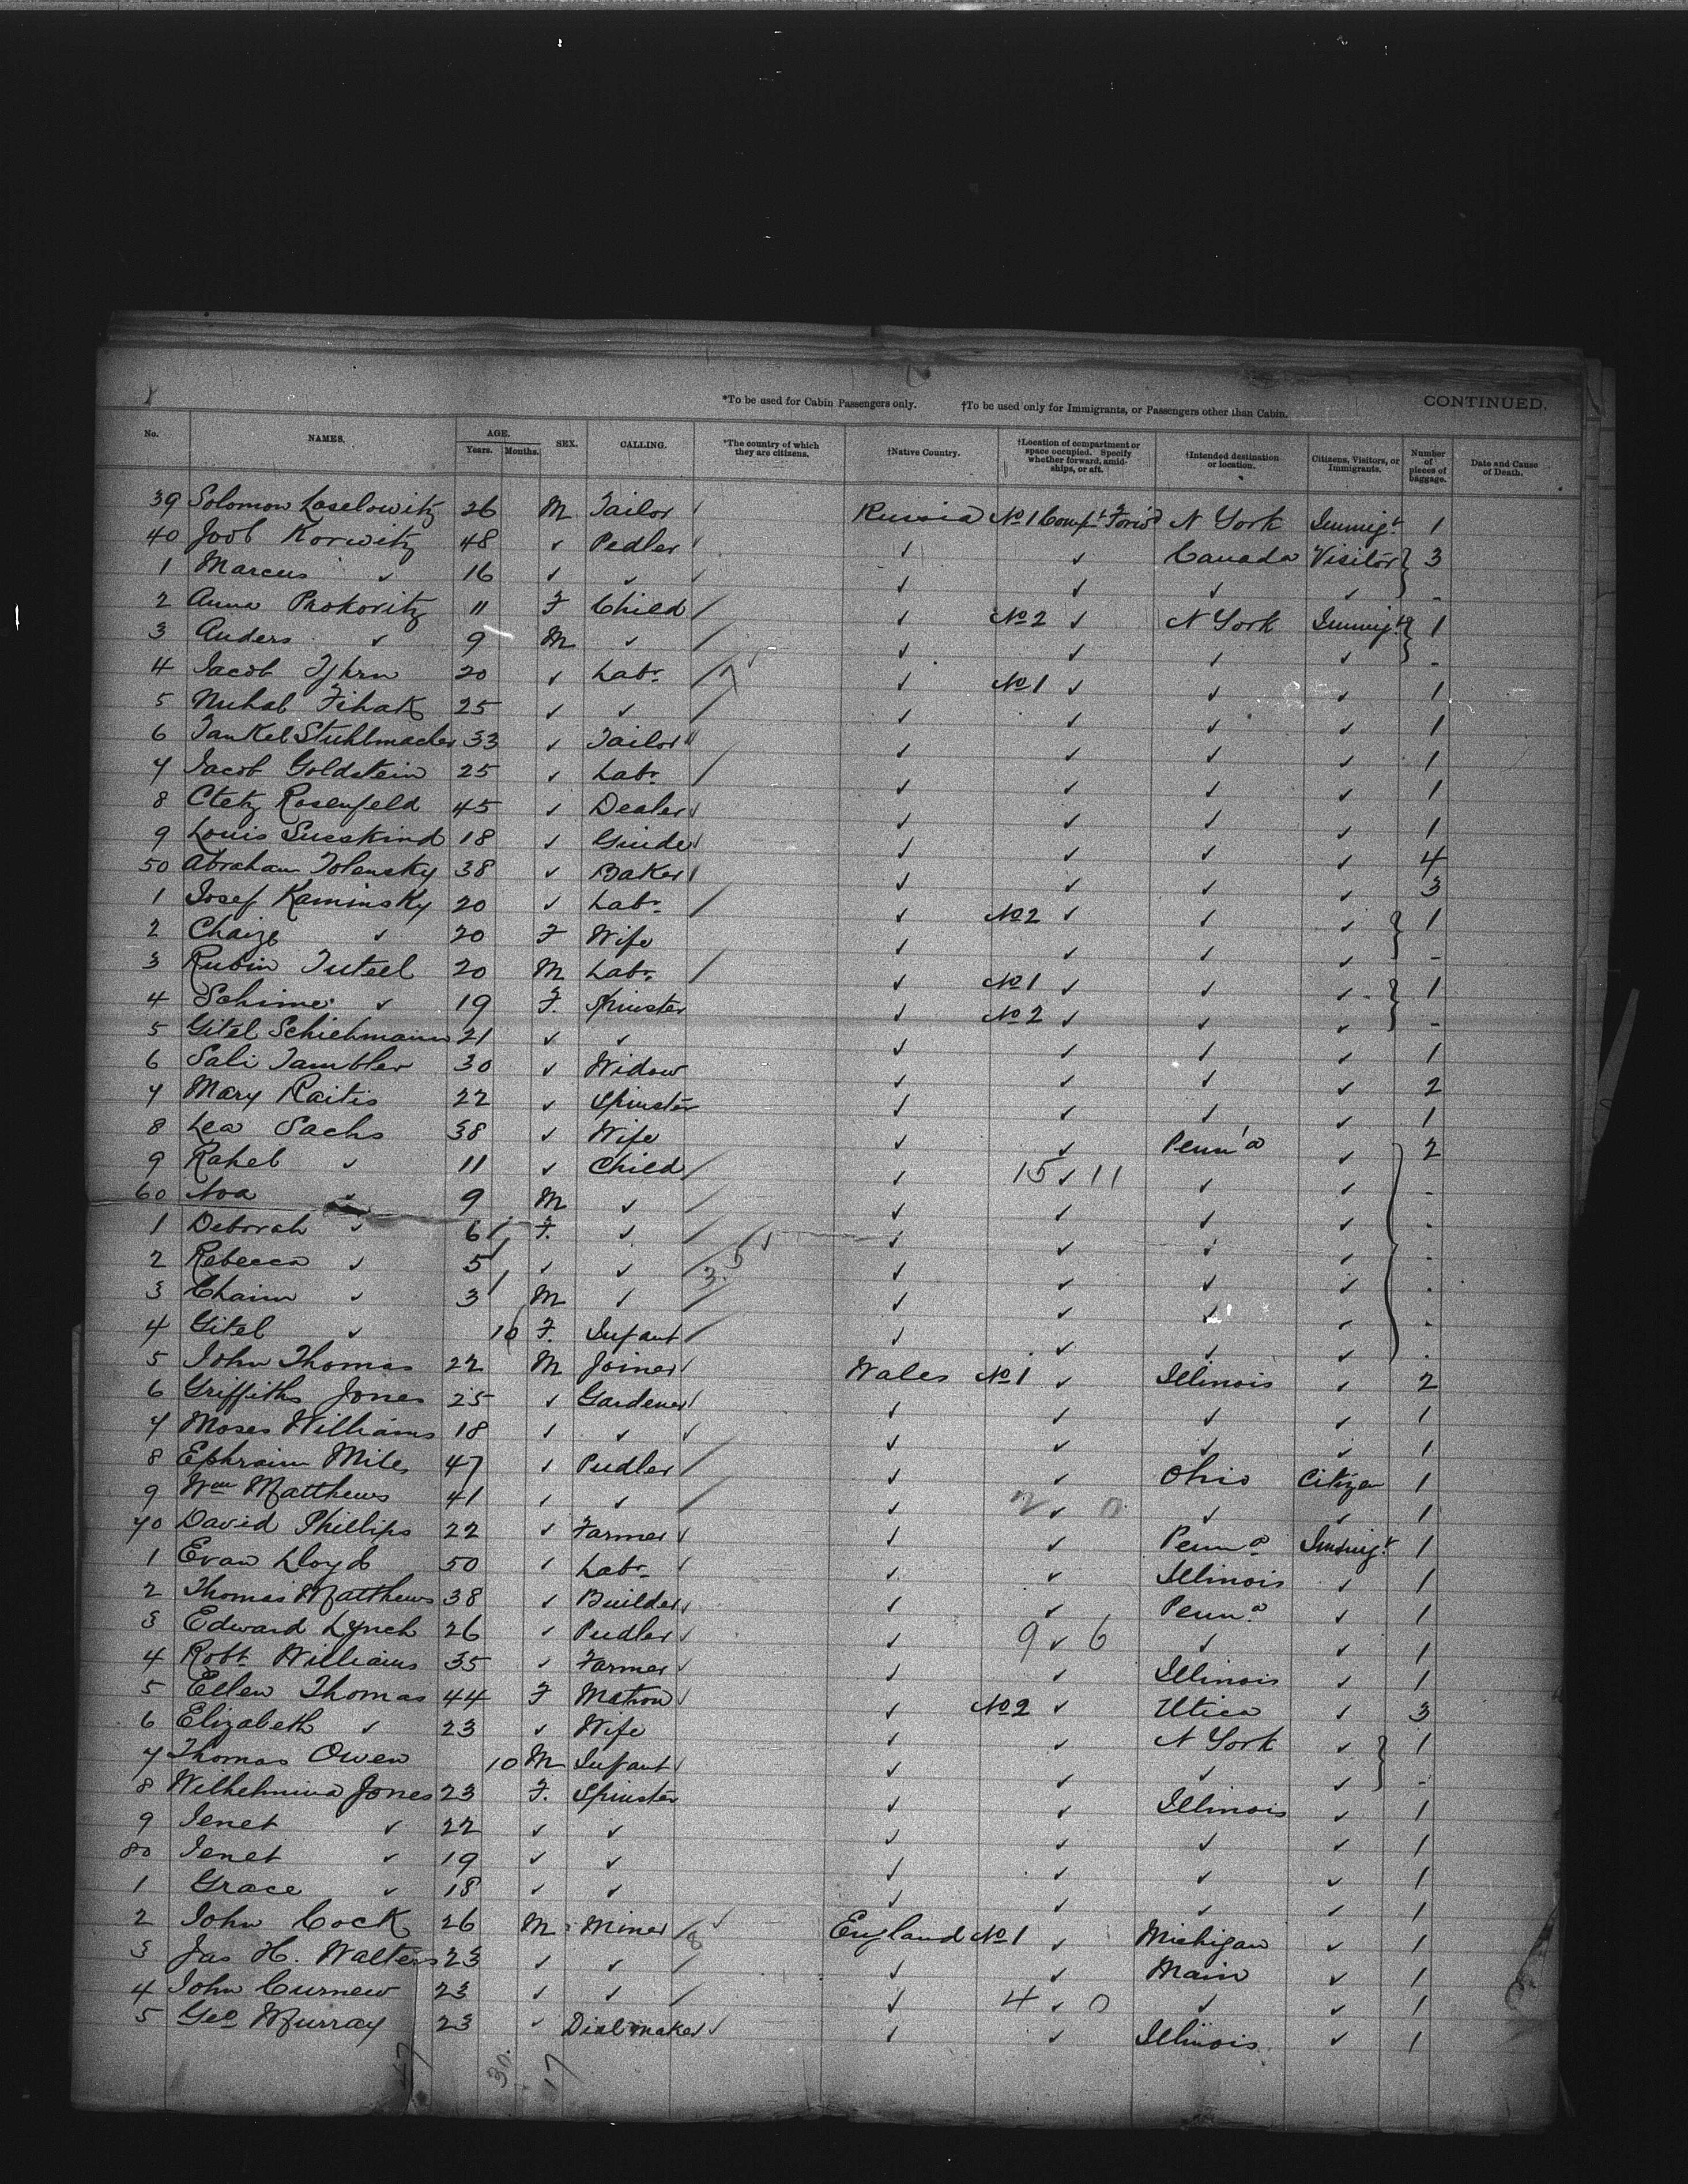 *To be used for Cabin Passengers only. †To be used only for Immigrants, or Passengers other than Cabin. CONTINUED.
No. NAMES. AGE. Years. Months. SEX. CALLING. *The country of which they are citizens. †Native Country. †Location of compartment or space occupied. Specify whether forward, amidships, or aft. †Intended destination or location. Citizens, Visitors, or Immigrants. Number of pieces of baggage. Date and Cause of Death.
39 Solomon Laselowitz 26 M Tailor Russia No 1 Compt Forwd N York Immigt 1
40 Joob Korwitz 48 ✓ Pedler ✓ ✓ Canada Visitor 3
1 Marcus ✓ 16 ✓ ✓ ✓ ✓ ✓ ✓ -
2 Anna Prokovitz 11 F Child ✓ No 2 ✓ N York Immigt 1
3 Anders ✓ 9 M ✓ ✓ ✓ ✓ ✓ -
4 Jacob 20 ✓ Labr ✓ No 1 ✓ ✓ ✓ 1
5 Fihak 25 ✓ ✓ ✓ ✓ ✓ ✓ 1
6 Jankel Stuhlmacher 33 ✓ Tailor ✓ ✓ ✓ ✓ 1
7 Jacob Goldstein 25 ✓ Labr ✓ ✓ ✓ ✓ 1
8 Rosenfeld 45 ✓ Dealer ✓ ✓ ✓ ✓ 1
9 Louis Susskind 18 ✓ ✓ ✓ ✓ ✓ 4
50 Abraham Tolensky 38 ✓ Baker ✓ ✓ ✓ ✓ 3
1 Josef Kaminsky 20 ✓ Labr ✓ No 2 ✓ ✓ ✓ 1
2 Chaize ✓ 20 F Wife ✓ ✓ ✓ ✓ -
3 Rubin Tuteel 20 M Labr ✓ No 1 ✓ ✓ ✓ 1
4 Schime ✓ 19 F. Spinster ✓ No 2 ✓ ✓ ✓ -
5 Gitel Schiehmann 21 ✓ ✓ ✓ ✓ ✓ ✓ 1
6 Sali Tambler 30 ✓ Widow ✓ ✓ ✓ ✓ 2
7 Mary Raitis 22 ✓ Spinster ✓ ✓ ✓ ✓ 1
8 Lea Sachs 38 ✓ Wife ✓ ✓ Penn'a ✓ 2
9 Rahel ✓ 11 ✓ Child ✓ 15 ✓ 11 ✓ ✓ -
60 Noa ✓ 9 M ✓ ✓ ✓ ✓ ✓ -
1 Deborah ✓ 6 F. ✓ ✓ ✓ ✓ ✓ -
2 Rebecca ✓ 5 ✓ ✓ ✓ ✓ ✓ ✓ -
3 Chaim ✓ 3 M ✓ ✓ ✓ ✓ ✓ -
4 Gitel ✓ 10 F. Infant ✓ ✓ ✓ ✓ -
5 John Thomas 22 M Joiner Wales No 1 ✓ Illinois ✓ 2
6 Griffiths Jones 25 ✓ Gardener ✓ ✓ ✓ ✓ 1
7 Moses Williams 18 ✓ ✓ ✓ ✓ ✓ ✓ 1
8 Ephraim Miles 47 ✓ Pudler ✓ ✓ Ohio Citizen 1
9 Wm Matthews 41 ✓ ✓ ✓ 2 ✓ 0 ✓ 1
70 David Phillips 22 ✓ Farmer ✓ ✓ Penna Immigt 1
1 Evan Lloyd 50 ✓ Labr ✓ ✓ Illinois ✓ 1
2 Thomas Matthews 38 ✓ Builder ✓ ✓ Penna ✓ 1
3 Edward Lynch 26 ✓ Pudler ✓ 9 ✓ 6 ✓ ✓ 1
4 Robt Williams 35 ✓ Farmer ✓ ✓ Illinois ✓ 1
5 Ellen Thomas 44 F Matron ✓ No 2 ✓ Utica ✓ 3
6 Elizabeth ✓ 23 ✓ Wife ✓ ✓ N York ✓ 1
7 Thomas Owen 10 M Infant ✓ ✓ ✓ ✓ -
8 Wilhelmina Jones 23 F. Spinster ✓ ✓ Illinois ✓ 1
9 Jenet ✓ 22 ✓ ✓ ✓ ✓ ✓ ✓ 1
80 Jenet ✓ 19 ✓ ✓ ✓ ✓ ✓ ✓ 1
1 Grace ✓ 18 ✓ ✓ ✓ ✓ ✓ ✓ 1
2 John Cock 26 M Miner England No 1 ✓ Michigan ✓ 1
3 Jas H. Walters 23 ✓ ✓ ✓ ✓ Main ✓ 1
4 John Curnew 23 ✓ ✓ ✓ 4 ✓ 0 ✓ ✓ 1
5 Geo Murray 23 ✓ Dial maker ✓ ✓ Illinois ✓ 1
30. 17